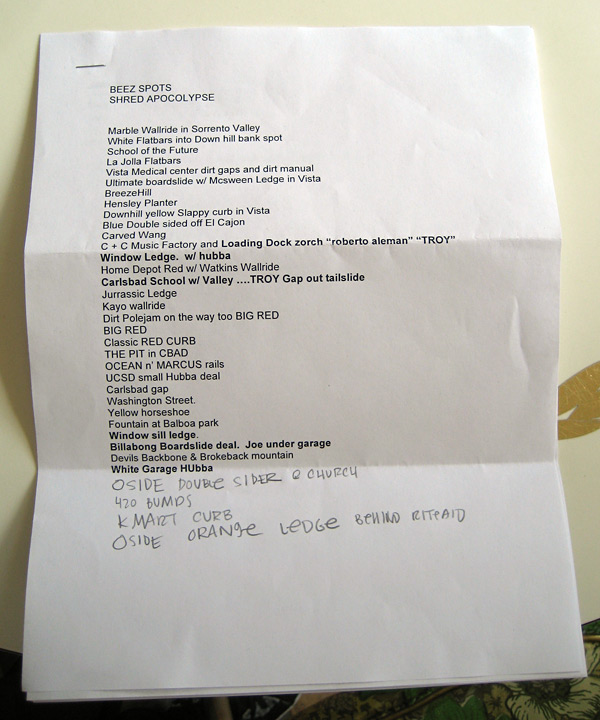 BEEZ SPOTS
SHRED APOCOLYPSE
Marble Wallride in Sorrento Valley
White Flatbars into Down hill bank spot
School of the Future
La Jolla Flatbars
Vista Medical center dirt gaps and dirt manual
Ultimate boardslide w/ Mcsween Ledge in Vista
BreezeHill
Hensley Planter
Downhill yellow Slappy curb in Vista
Blue Double sided off El Cajon
Carved Wang
C + C Music Factory and Loading Dock zorch “roberto aleman” “TROY”
Window Ledge. w/ hubba
Home Depot Red w/ Watkins Wallride
Carlsbad School w/ Valley ….TROY Gap out tailslide
Jurrassic Ledge
Kayo wallride
Dirt Polejam on the way too BIG RED
BIG RED
Classic RED CURB
THE PIT in CBAD
OCEAN n' MARCUS rails
UCSD small Hubba deal
Carlsbad gap
Washington Street.
Yellow horseshoe
Fountain at Balboa park
Window sill ledge.
Billabong Boardslide deal. Joe under garage
Devils Backbone & Brokeback mountain
White Garage HUbba
OSIDE DOUBLE SIDER @ CHURCH
420 BUMPS
K MART CURB
OSIDE ORANGE LEDGE BEHIND RITEAID